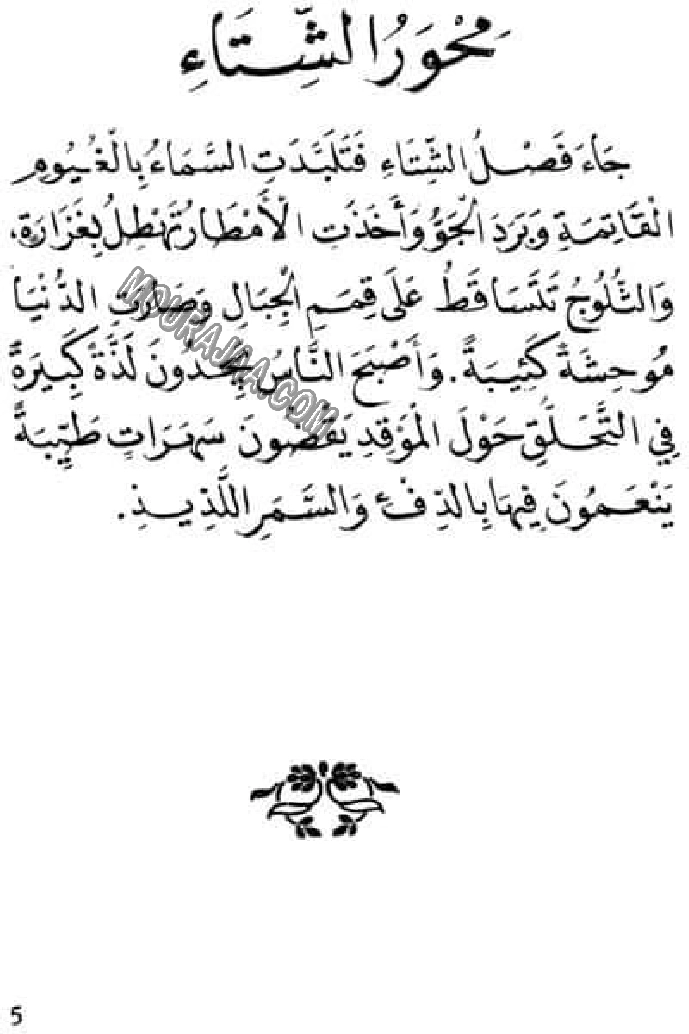 مَحْوَرُ الشِّتَاءِ
جَاءَ فَصْلُ الشِّتَاءِ فَتَلَبَّدَتِ السَّمَاءُ بِالْغُيُومِ
الْقَاتِمَةِ وَبَرَدَ الْجَوُّ وَأَخَذَتِ الْأَمْطَارُ تَهْطِلُ بِغَزَارَةٍ،
وَالثُّلُوجُ تَتَسَاقَطُ عَلَى قِمَمِ الْجِبَالِ وَصَارَتِ الدُّنْيَا
مُوحِشَةً كَئِيبَةً. وَأَصْبَحَ النَّاسُ يَجِدُونَ لَذَّةً كَبِيرَةً
فِي التَّحَلُّقِ حَوْلَ الْمَوْقِدِ يَقْضُونَ سَهَرَاتٍ طَيِّبَةً
يَنْعَمُونَ فِيهَا بِالدِّفْءِ وَالسَّمَرِ اللَّذِيذِ.
MOURAJAA.COM
5